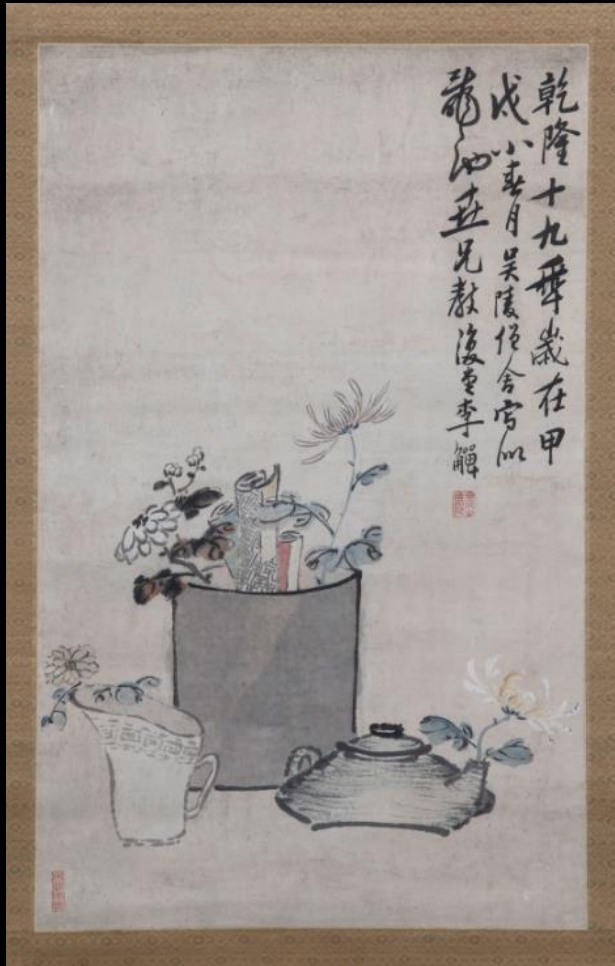 乾隆十九年歲在甲
戌小春月吴陵僧舍寫似
龍池兄教復堂李觶